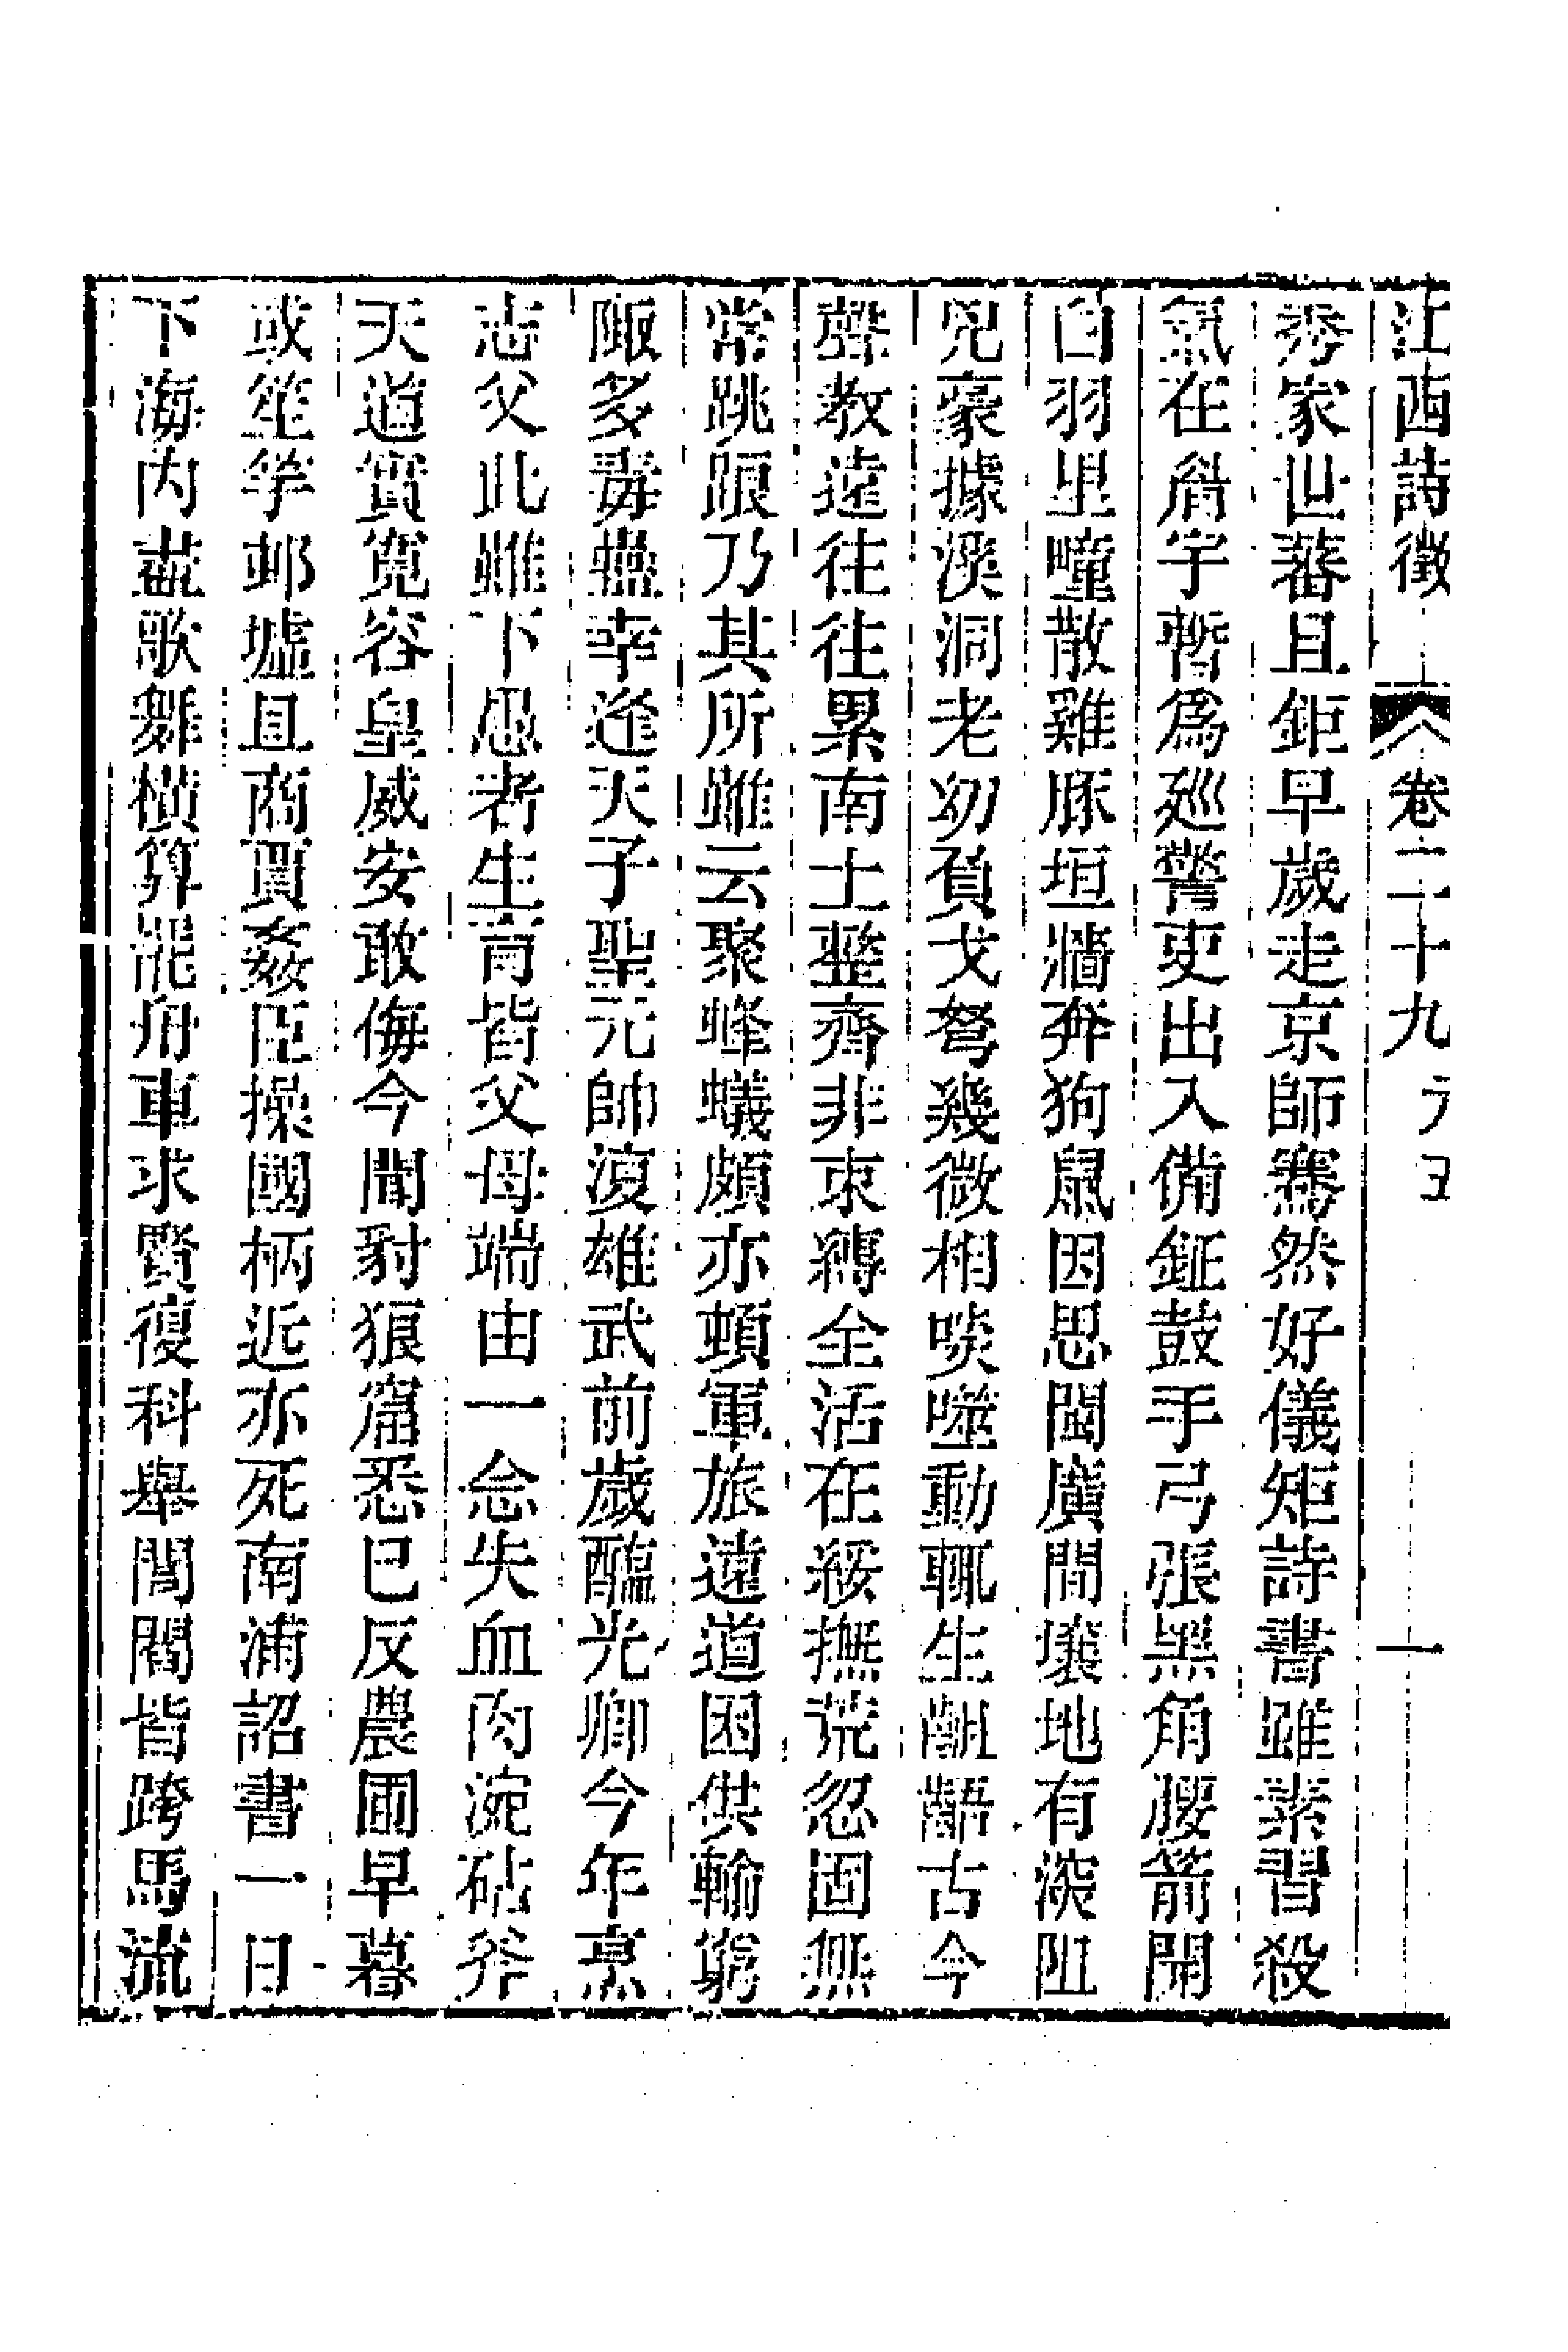 江西詩徵 卷二十九 元五 一
秀家世蕃且鉅早歲走京師騫然好儀矩詩書雖素習殺
氣在眉宇暫爲廵警吏出入備鉦鼓手弓張黑角腰箭開
白羽里疃散雞豚垣牆奔狗鼠因思閩廣間壤地有深阻
兇豪據溪洞老幼負戈弩幾微相啖噬動輒生齟齬古今
聲教遠往往累南土整齊非束縛全活在綏撫荒忽固無
常跳踉乃其所雖云聚蜂蟻頗亦頓軍旅遠道困供輸窮
陬多毒蠱幸逢天子聖元帥復雄武前歲醢光卿今年烹
志父此雖下愚者生育皆父母端由一念失血肉涴砧斧
天道實寬容皇威安敢侮今聞豺狼窟悉已反農圃早暮
或笙竽邨墟且商賈姦臣操國柄近亦死南浦詔書一日
下海内盡歌舞橫算罷舟車求賢復科舉閭閻皆跨馬流